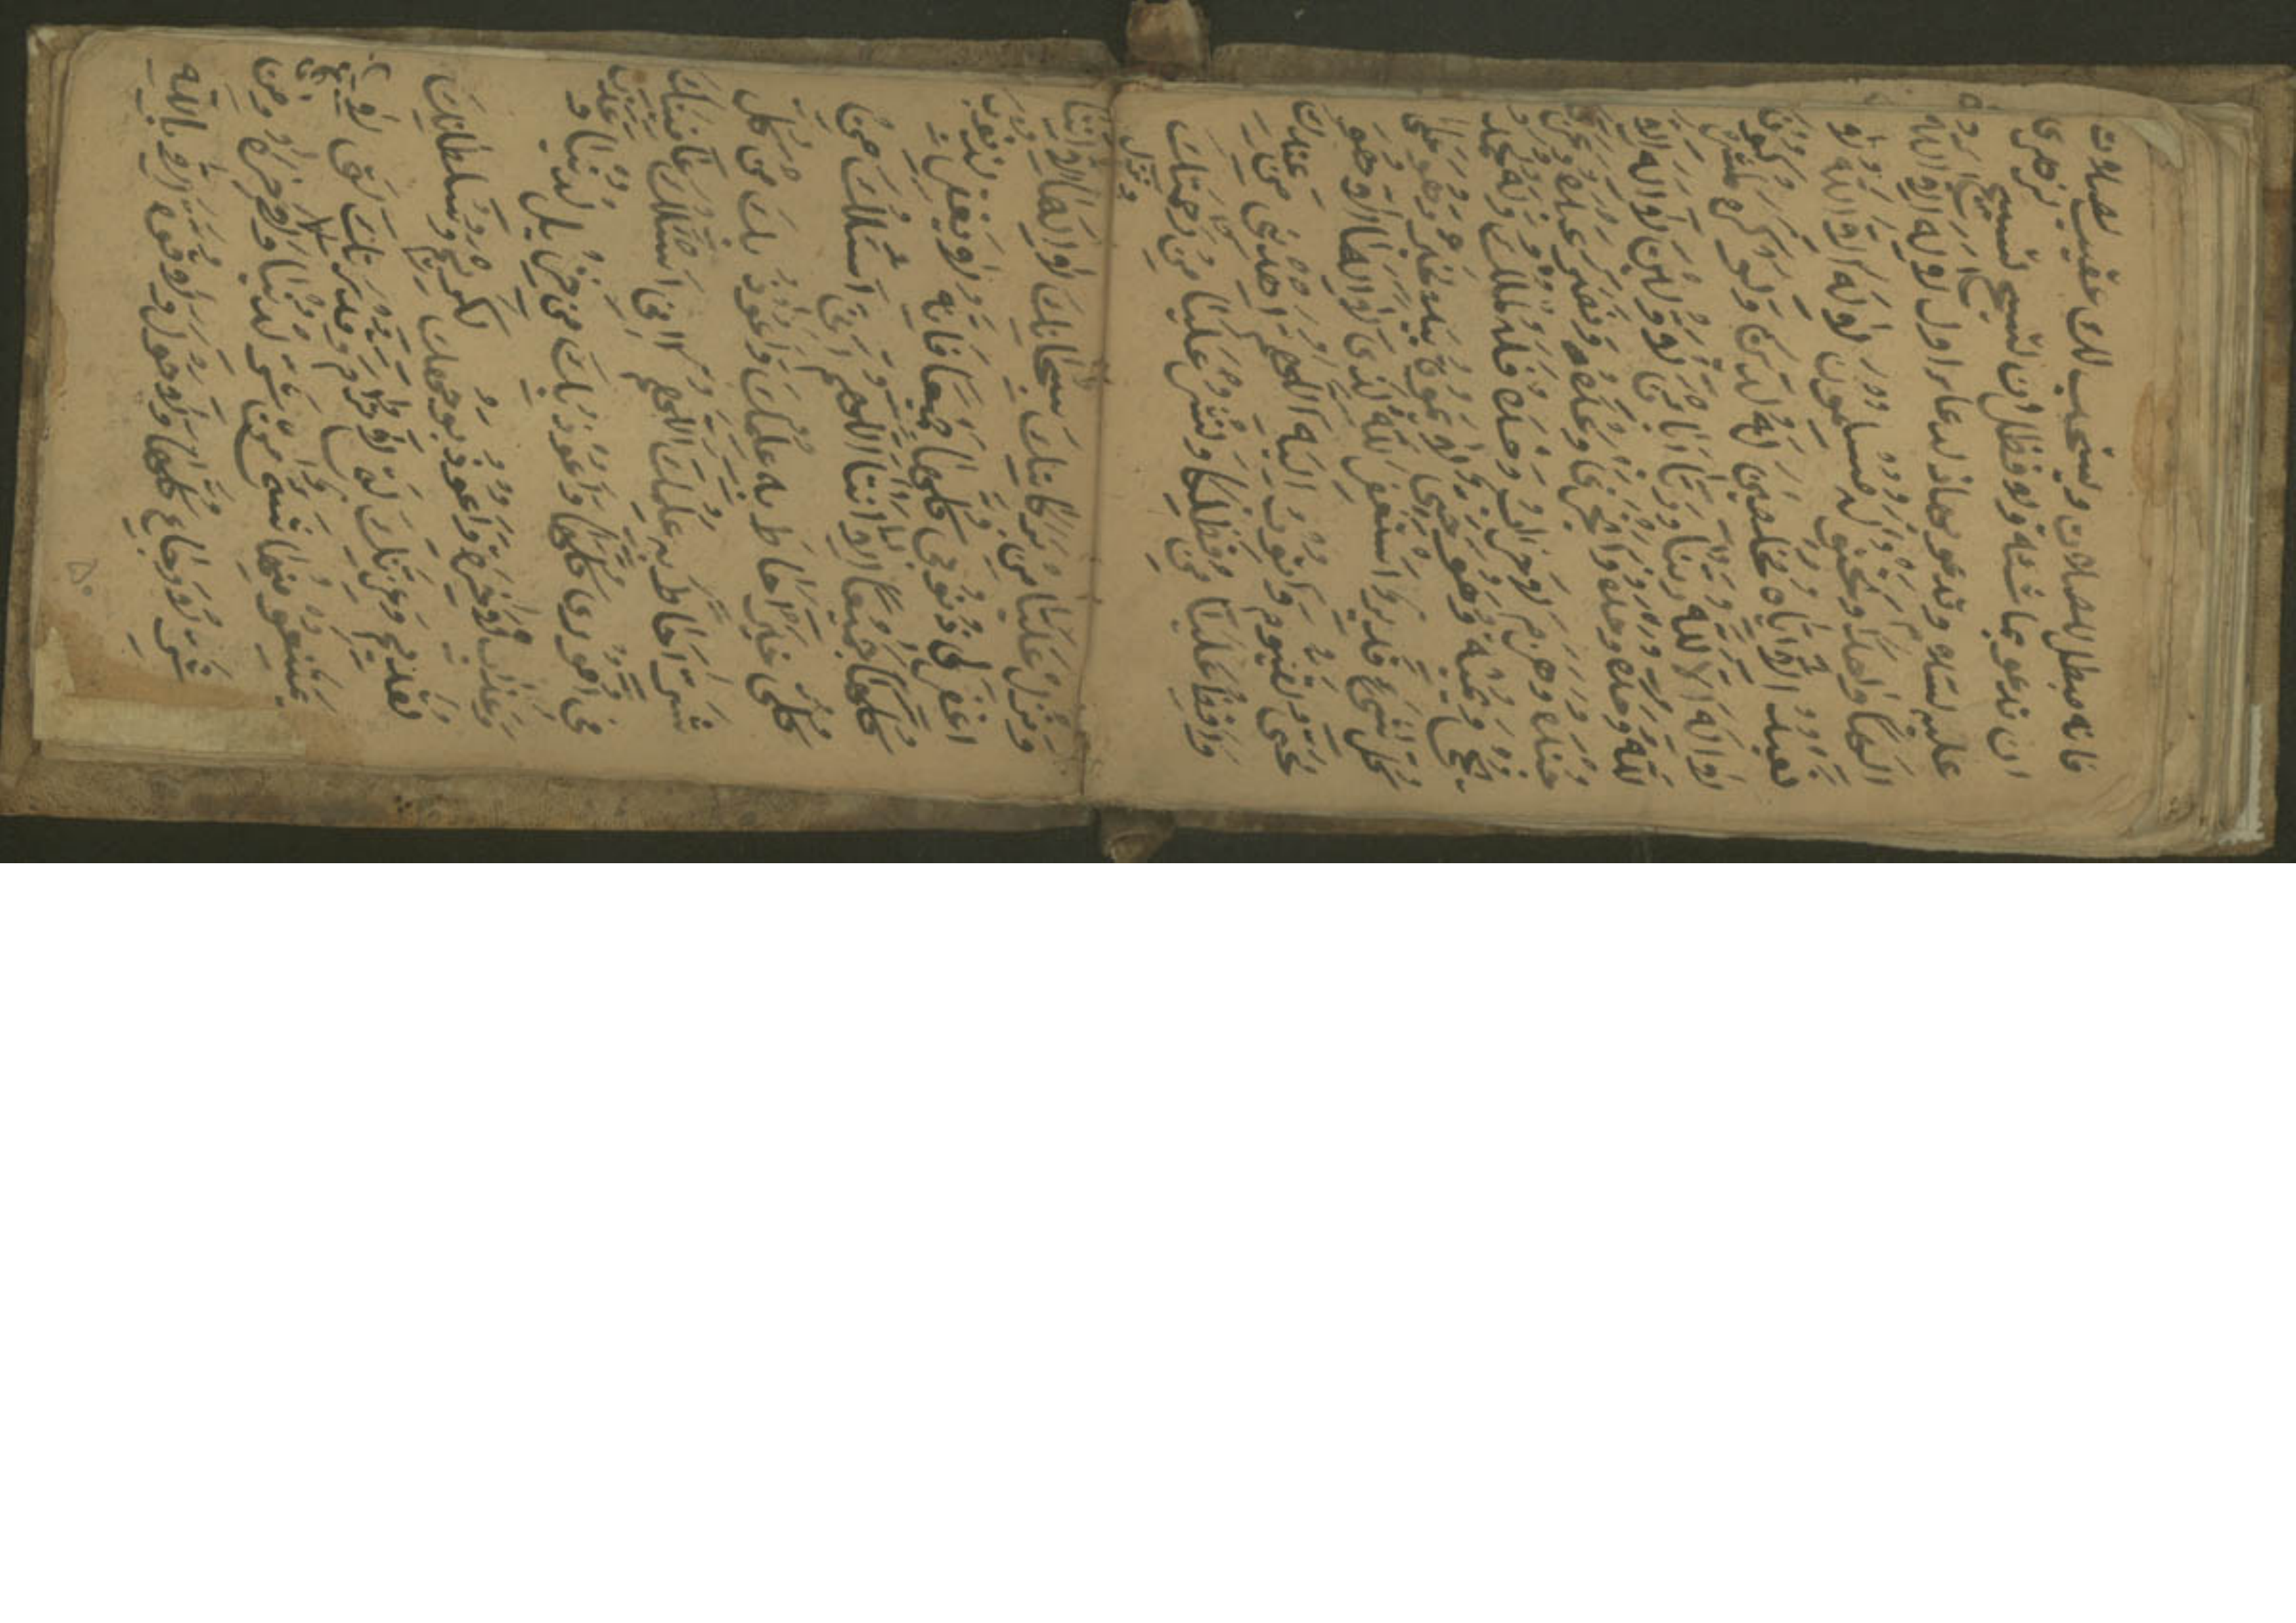 فانه مبطل للصلات ويستحب لك عقيب صلات
ان تدعو بما شئت ولو فظل ان تسبح تسبيح الزهرى
عليه سلام وتدعو بهاذ لدعاء اول لا اله الا الله
الها واحدا ونحنو له مسلمون لا اله الا الله ولا
نعبد الا اياه مخلصين له لدين ولو كره لمشركون
لا اله الا الله ربنا ورب ابائنا لاولين لا اله الا
الله وحده وحده وحده انجز وعده ونصر عبده وعز
جنده وهزم لاحزاب وحده فله لملك وله لحمد
يحي ويميت وهو حي لا يموت بيده لخير وهو على
كل شيء قدير استغفر الله لذي لا اله الا هو
لحي لقيوم واتوب اليه اللهم اهدني من عندك
وافظ علينا من فظلك ونشر علينا من رحمتك
ونزل
ونزل علينا من بركاتك سبحانك لا اله الا انت
اغفر لي ذنوبي كلها جميعا فانه لا يغفر لذنوب
كلها جميعا الا انت اللهم اني اسئلك من
كل خير احاط به علمك واعوذ بك من كل
شر احاط به علمك اللهم اني اسئلك عافيتك
في اموري كلها واعوذ بك من خزي لدنيا و
وعذاب لاخرة واعوذ بوجهك لكريم وسلطانك
لقديم وعزتك لتي لا ترام وقدرتك لتي لا
يمتنعو منها شيء من شر لدنيا ولاخرة ومن
شر لاوجاع كلها ولا حول ولا قوة الا بالله